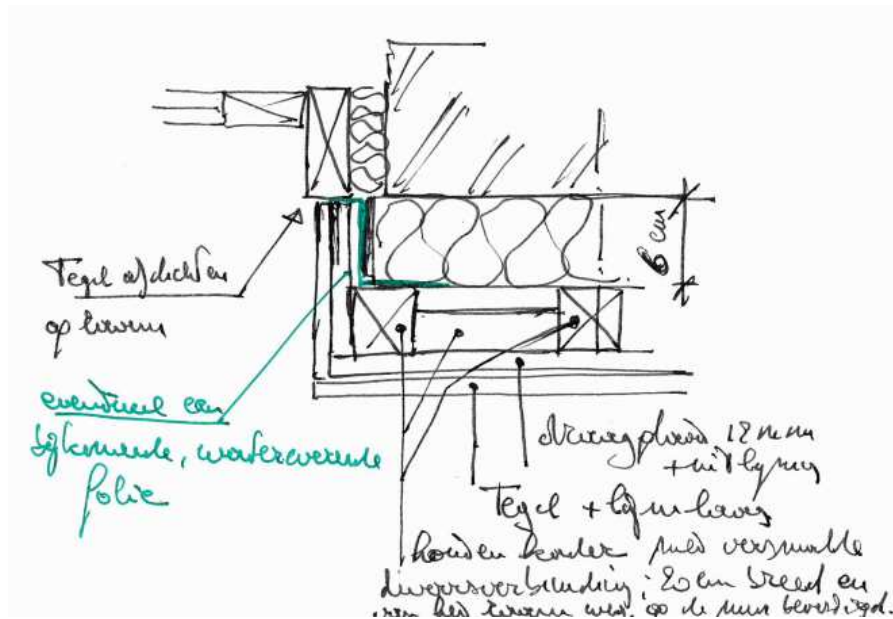 6 cm
Tegel afdichten
op
eventueel een
bijkomende, waterwerende
folie
draagplaat 12 mm
+ uitlijnen
Tegel + lijmlaag
houten kader met versmalde
dwarsverbinding : 20 cm breed en
op de muur bevestigd.